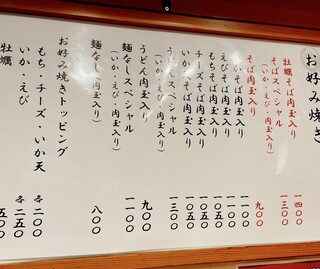 お好み焼き
牡蠣そば肉玉入り 一四〇〇
そばスペシャル 一三〇〇
(いか・えび・肉玉入り)
そば肉玉入り 九〇〇
いかそば肉玉入り 一一〇〇
えびそば肉玉入り 一一〇〇
もちそば肉玉入り 一〇五〇
チーズそば肉玉入り 一〇五〇
うどんスペシャル 一三〇〇
(いか・えび・肉玉入り)
うどん肉玉入り 九〇〇
麺なしスペシャル 一一〇〇
(いか・えび・肉玉入り)
麺なし(肉玉入り) 八〇〇
お好み焼きトッピング
もち・チーズ・いか天 各二〇〇
いか・えび 各二五〇
牡蠣 五〇〇